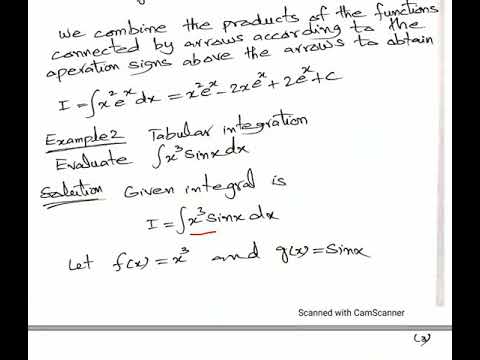 We combine the products of the functions
connected by arrows according to the
operation signs above the arrows to obtain
I = ∫x²eˣdx = x²eˣ - 2xeˣ + 2eˣ + c
Example2 Tabular integration
Evaluate ∫x³sinx dx
Solution Given integral is
I = ∫x³sinx dx
Let f(x) = x³ and g(x) = sinx
Scanned with CamScanner
(3)